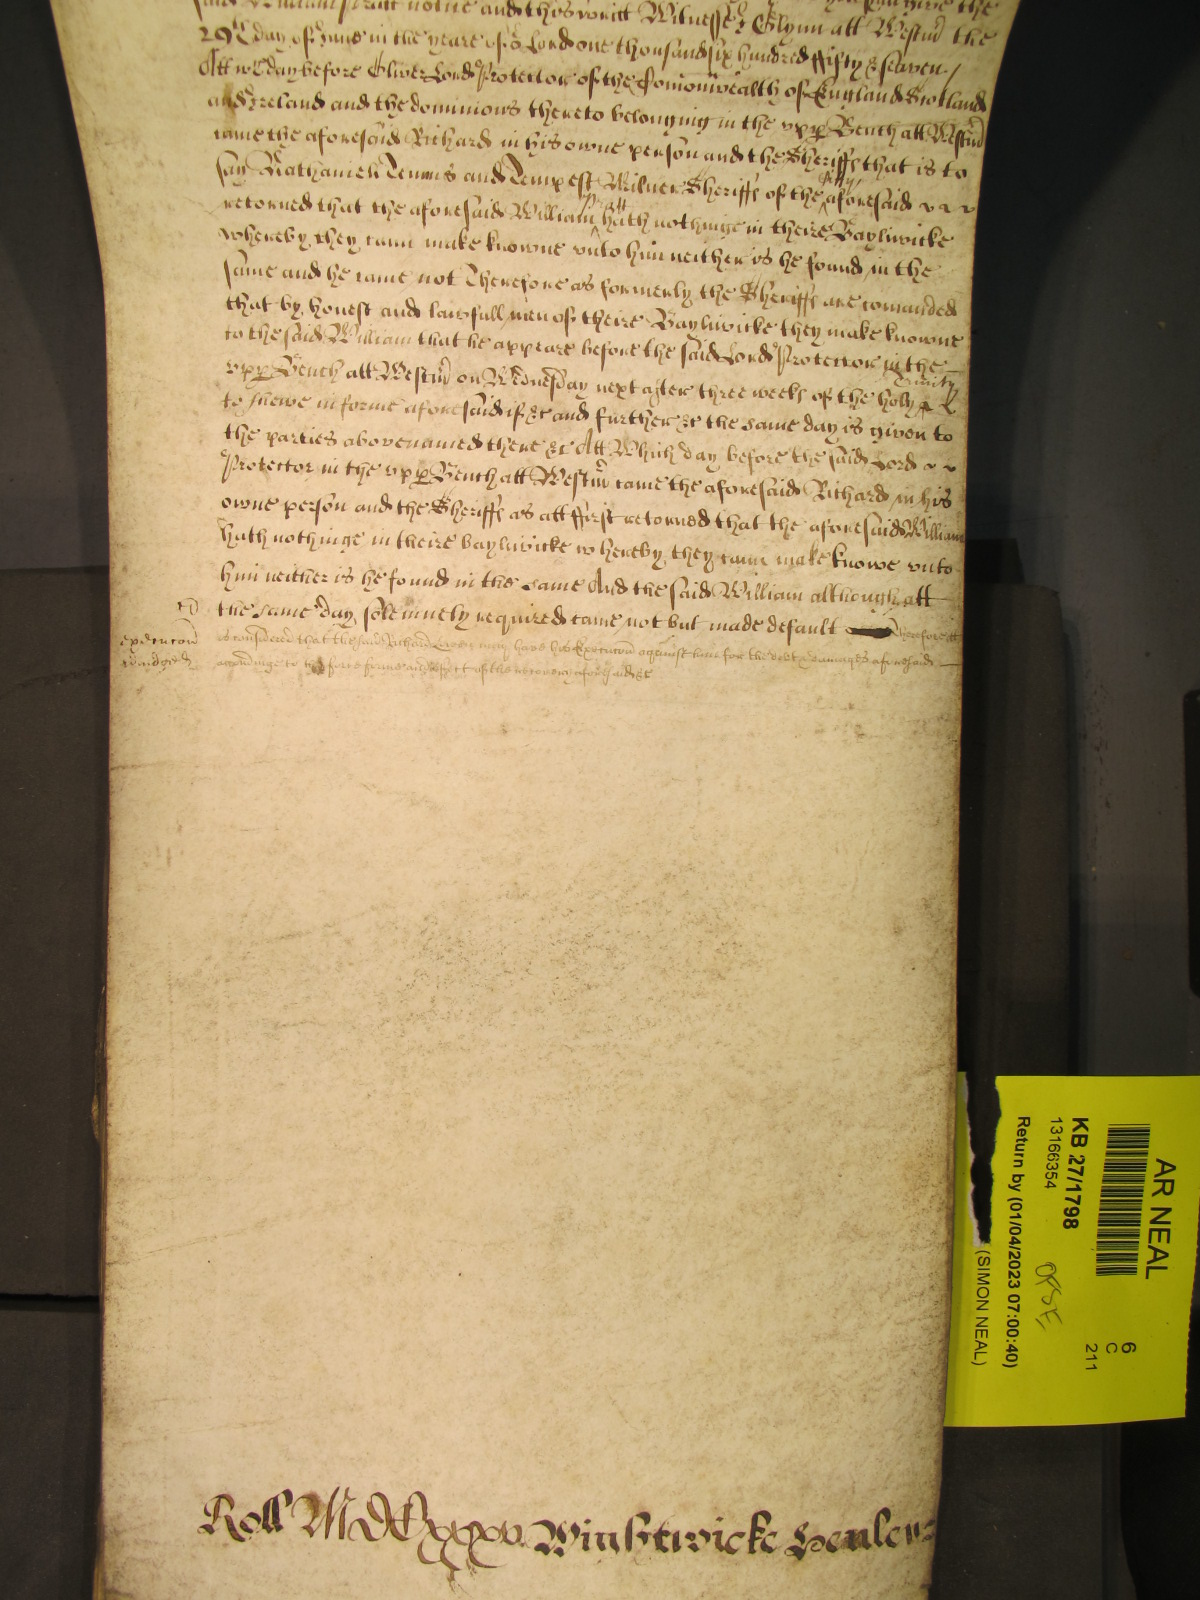 said William Pratt notice and this writt Witnesse J Glynn att Westmr the
29th day of June in the yeare of or Lord one thousand six hundred ffifty & seaven /
Att wch day before Oliver Lord Protector of the Comonwealth of England Scotland
and Ireland and the dominions thereto belonging in the upp Bench att Westmr
came the aforesaid Richard in his owne person and the Sheriffs that is to
say Nathaniell Temms and Tempest Milner Sheriffs of the Citty aforesaid
retorned that the aforesaid William Pratt hath nothinge in theire Bayliwicke
whereby they cann make knowne unto him neither is he found in the
same and he came not Therefore as formerly the Sheriffs are comanded
that by honest and lawfull men of theire Bayliwicke they make knowne
to the said William that he appeare before the said Lord Protector in the
upp Bench att Westmr on Wednesday next after three weeks of the holy Trinity
to shewe in forme aforesaid if &c and further &c the same day is given to
the parties abovenamed there &c Att Which day before the said Lord
Protector in the upp Bench att Westmr came the aforesaid Richard in his
owne person and the Sheriffs as att ffirst retorned that the aforesaid William
hath nothinge in theire bayliwicke whereby they cann make knowe unto
him neither is he found in the same And the said William although att
the same day solemnely required came not but made default Therefore itt
is considered that the said Richard may have his Execucon against him for the debt & damages aforesaid
accordinge to the force forme and effect of the recovery aforesaid &c
execucon
Roll MDCxxxv Wightwicke Henley
AR NEAL
KB 27/1798
13166354
Return by (01/04/2023 07:00:40)
(SIMON NEAL)
6
C
211